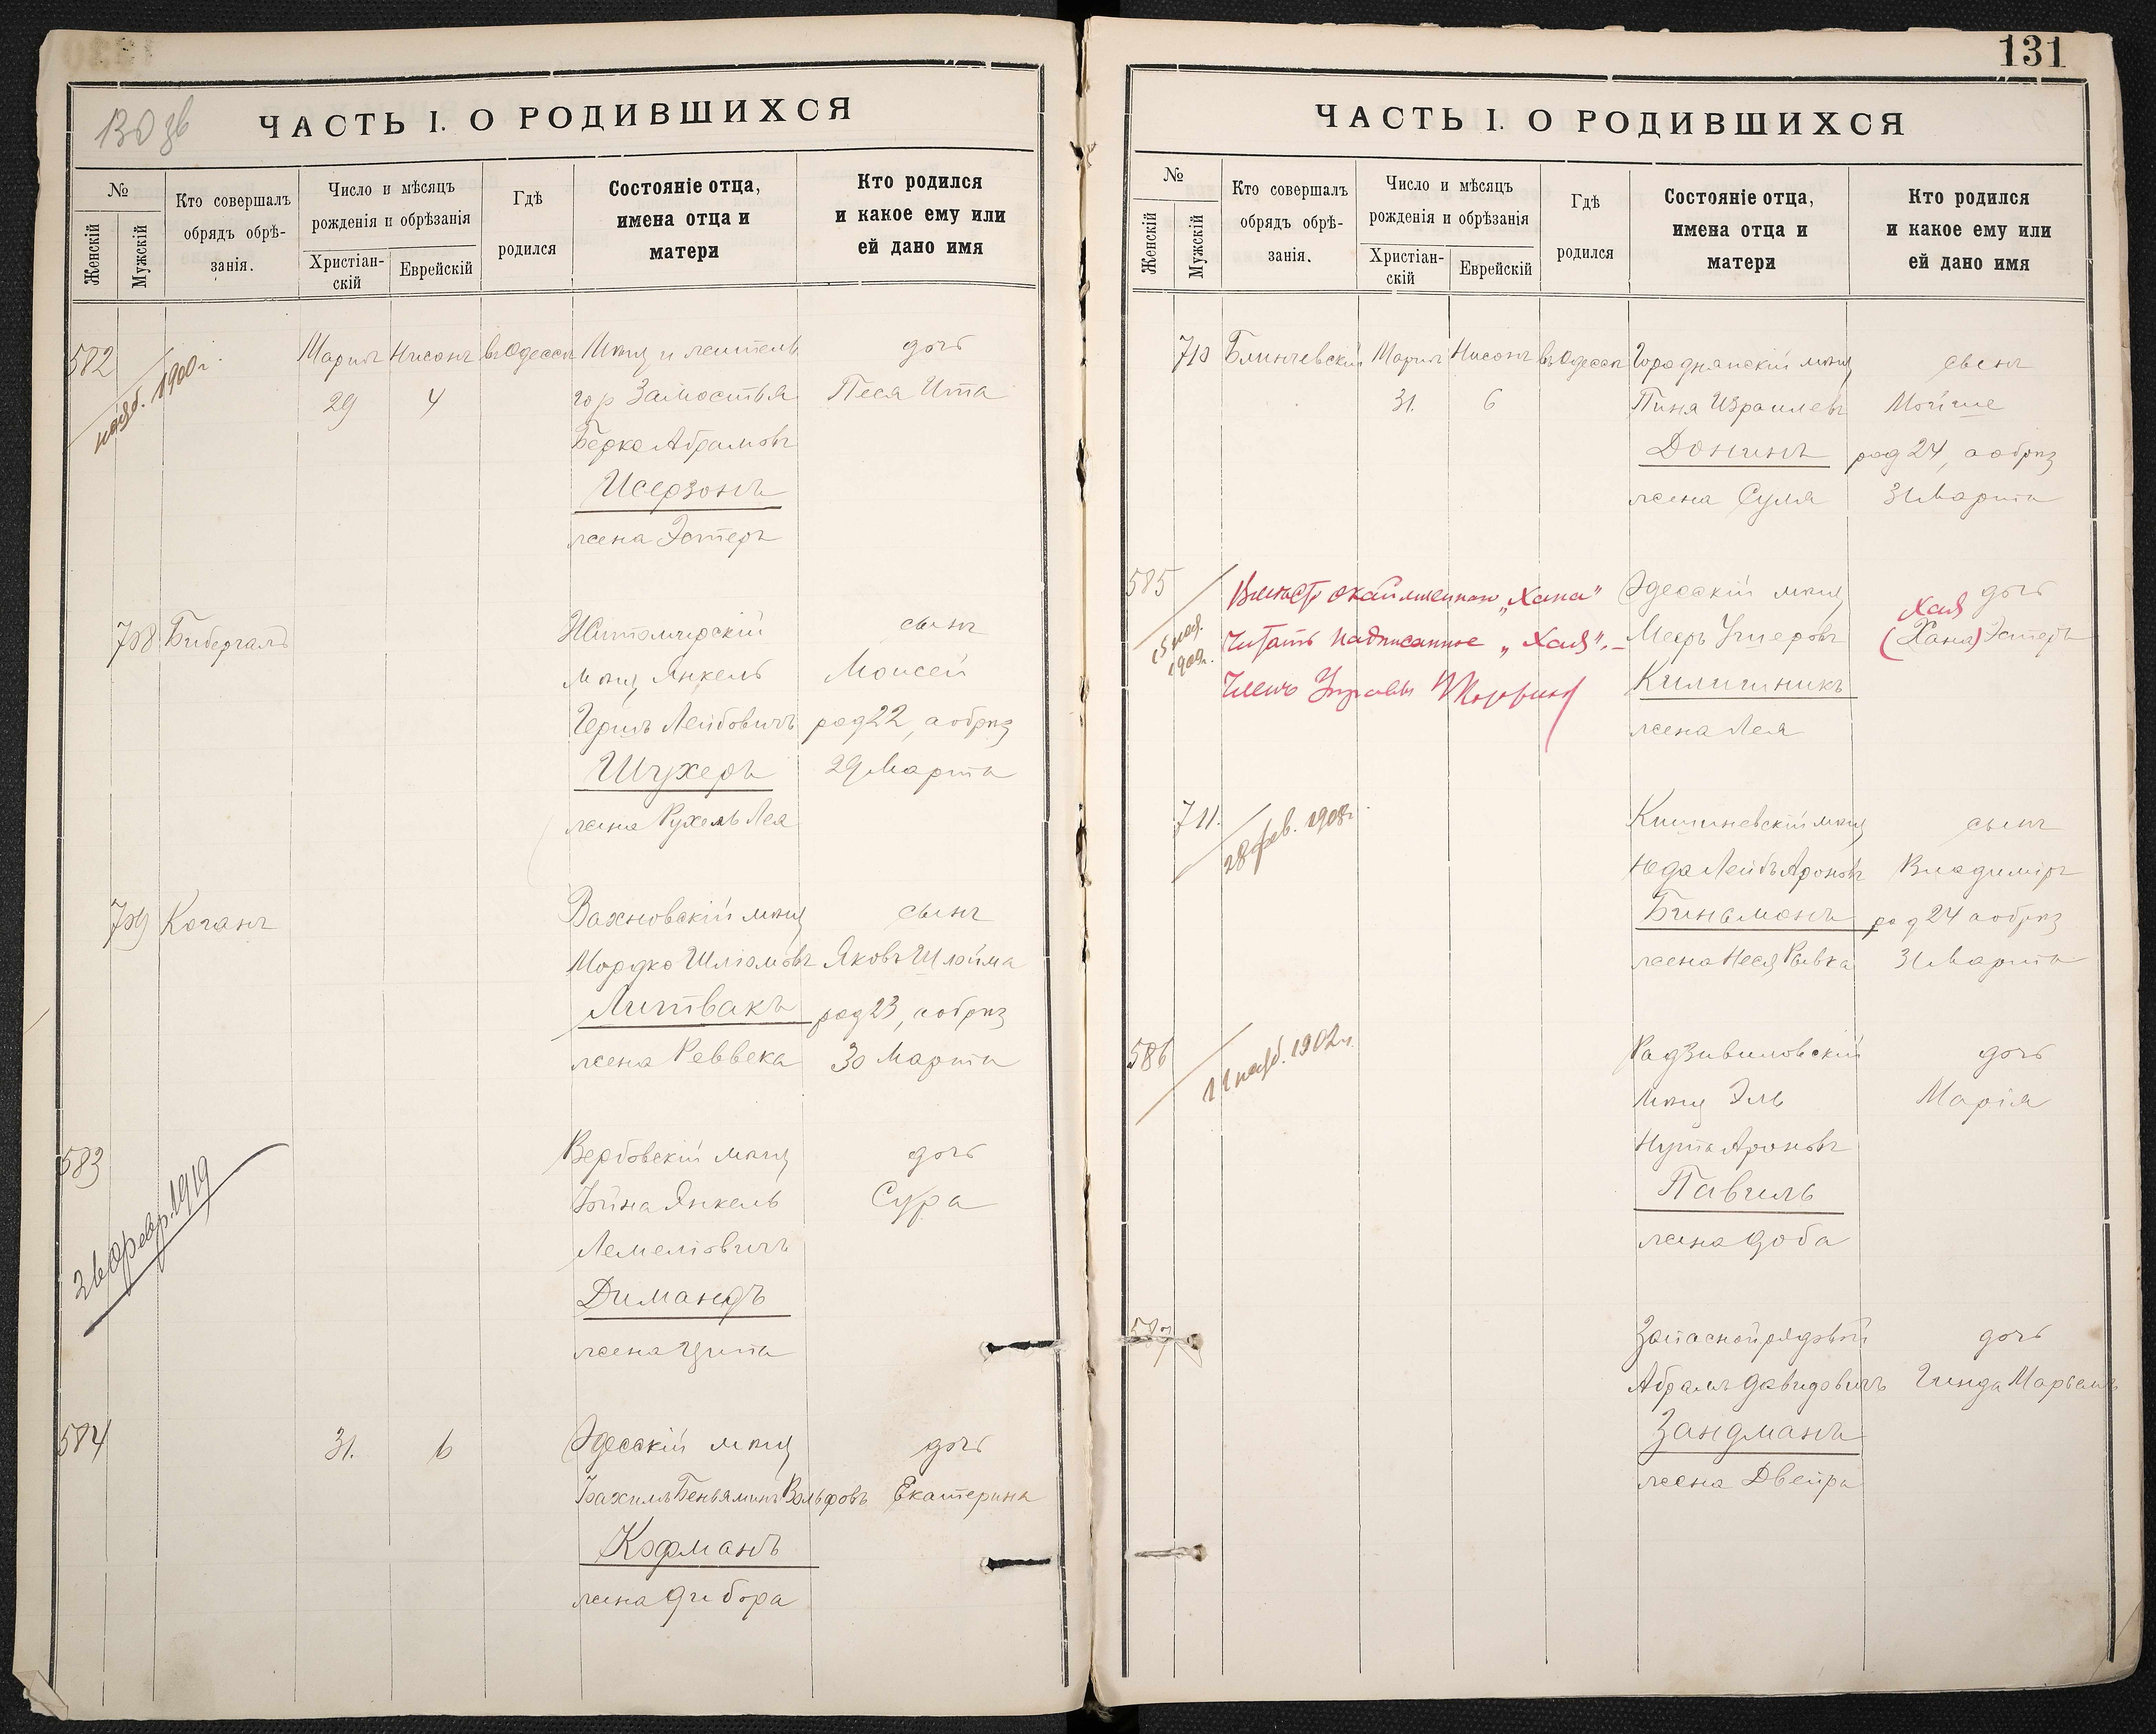 130 зв
ЧАСТЬ I. О РОДИВШИХСЯ
№
Женскій
Мужскій
Кто совершалъ
обрядъ обрѣ-
занія.
Число и мѣсяцъ
рожденія и обрѣзанія
Христіан-
скій
Еврейскій
Гдѣ
родился
Состояніе отца,
имена отца и
матери
Кто родился
и какое ему или
ей дано имя
582 Мартъ Нисонъ въ Одессѣ Мѣщ и житель дочь
нояб. 1900 г.
29 4 гор Замостья Песя Ита
Берко Абрамовъ
Исерзонъ
жена Эстеръ
708 Бибергалъ Житомирскій сынъ
мѣщ Янкель Моисей
Герш Лейбовичъ род 22, а обрѣз
Шухеръ 29 Марта
жена Рухель Лея
709 Коганъ Вахновскій мѣщ сынъ
Мордко Шліомовъ Яковъ Шлойма
Литвакъ род 23, а обрѣз
жена Реввека 30 Марта
583 Вербовскій мѣщ дочь
Іойна Янкель Сура
26 февр. 1919
Лемеліовичъ
Димандъ
жена Цита
584 31. 6 Одесскій мѣщ дочь
Іоахимъ Беньяминъ Вольфовъ Екатерина
Кофманъ
жена Дибора
131
ЧАСТЬ I. О РОДИВШИХСЯ
№
Женскій
Мужскій
Кто совершалъ
обрядъ обрѣ-
занія.
Число и мѣсяцъ
рожденія и обрѣзанія
Христіан-
скій
Еврейскій
Гдѣ
родился
Состояніе отца,
имена отца и
матери
Кто родился
и какое ему или
ей дано имя
710 Блинчевскій Мартъ Нисонъ въ Одессѣ Городнянскій мѣщ сынъ
31. 6 Пиня Израилевъ Мойше
Донинъ род 24, а обрѣз
жена Суля 31 Марта
585 Вмѣсто окаймленнаго "Хана" Одесскій мѣщ дочь
Хая
1909г.
читать надписанное "Хая". Меер Ушеровъ (Хана) Эстеръ
Членъ Управы Килишникъ
жена Лея
711. Кишиневскій мѣщ сынъ
28 фев. 1908 г
Юда Лейбъ Ароновъ Владиміръ
Биньмонъ род 24 а обрѣз
жена Неся Рывка 31 Марта
586 Радзивиловскій дочь
11 нояб. 1902 г.
мѣщ Эль Марія
Нута Ароновъ
Павчль
жена Доба
587 Запасной рядовой дочь
Абрамъ Давидовичъ Гинда Марьямъ
Зандманъ
жена Двейра